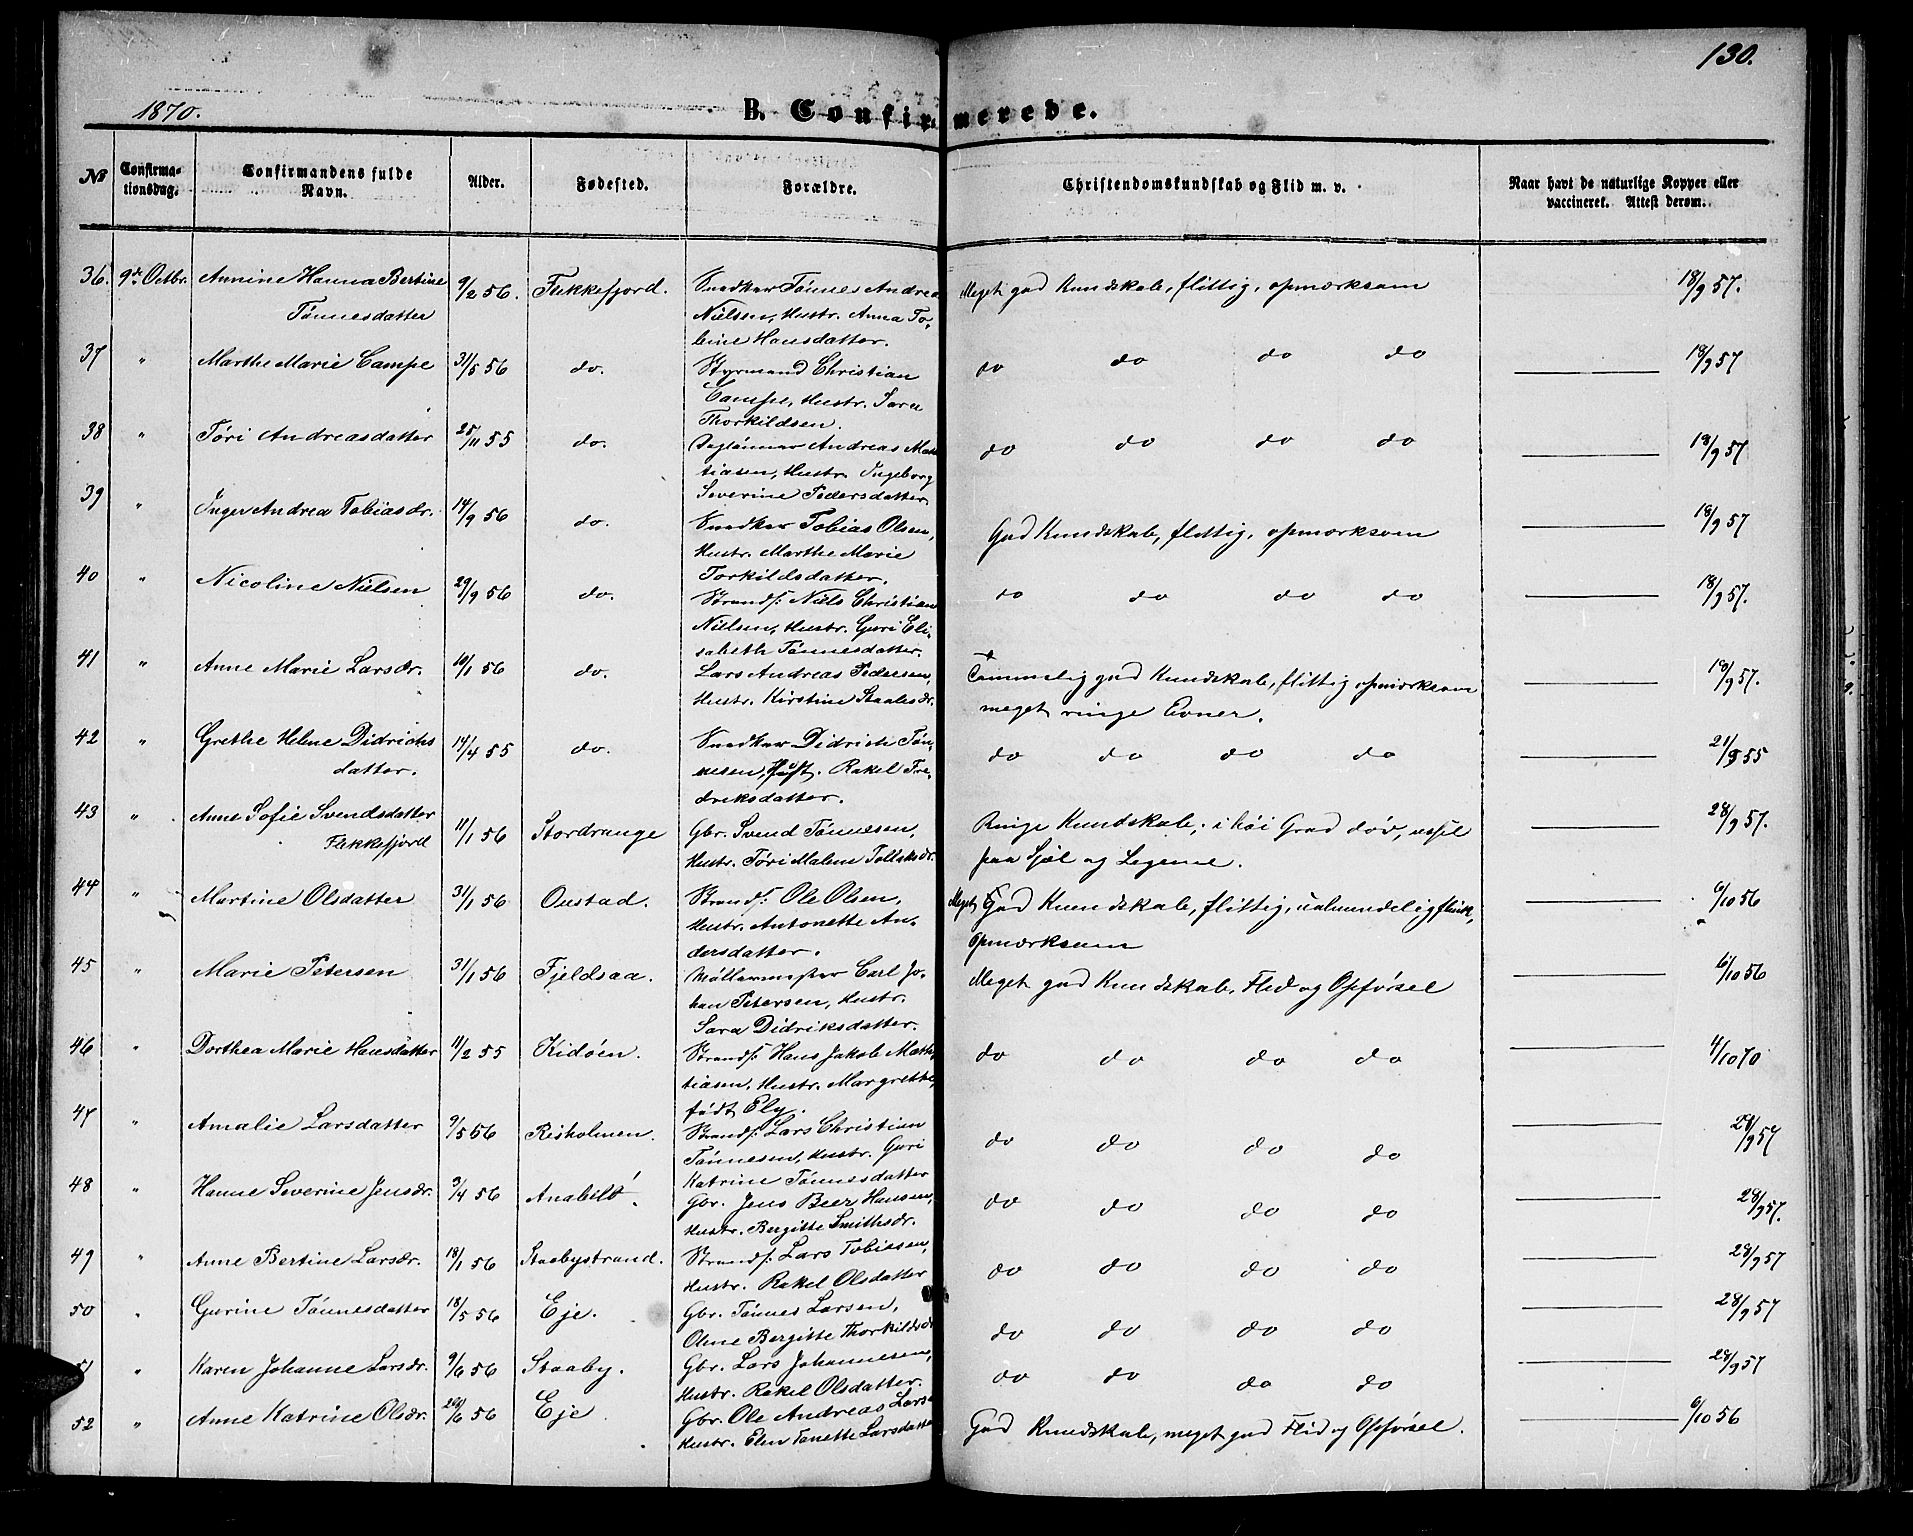 130.
1870.
B. Confirmerede.
No
Confirma-
tionsdag.
Confirmandens fulde
Navn.
Alder.
Fødested.
Forældre.
Christendomskundskab og Flid m. v.
Naar havt de naturlige Kopper eller
vaccineret. Attest derom.
36. 9de Octbr. Annine Hanna Bertine 9/2 56. Flekkefjord. Snedker Tønnes Andreas Meget god Kundskab, flittig, opmærksom 18/9 57.
Tønnesdatter Nielsen, Hustr. Anna To-
bine Hansdatter.
37 " Marthe Marie Campe 31/5 56 do. Styrmand Christian do do do do 18/9 57
Campe, Hustr. Sara
Thorkildsen.
38 " Tøri Andreasdatter 25/11 55 do. Daglønner Andreas Mat- do do do do 18/9 57
tiasen, Hustr. Ingeborg
Severine Pedersdatter
39 " Inger Andrea Tobiasdr. 14/9 56 do. Snedker Tobias Olsen, God Kundskab, flittig, opmærksom 18/9 57
Hustr. Marthe Marie
Torkildsdatter.
40 " Nicoline Nielsen 29/9 56 do. Strands: Niels Christian do do do do 18/9 57.
Nielsen, Hustr. Guri Eli-
sabeth Tønnesdatter.
41 " Anne Marie Larsdr. 10/1 56 do. Lars Andreas Pedersen, Temmelig god Kundskab, flittig opmærksom 18/9 57.
Hustr. Kirstine Staalesdr. meget ringe Evner.
42 " Grethe Helene Didrichs 14/4 55 do. Snedker Didrich Tøn- do do do do 21/9 55
datter. nesen, Rakel Fre-
driksdatter.
43 " Anne Sofie Svendsdatter 11/1 56 Stordrange Gbr. Svend Tønnesen, Ringe Kundskab, i høi Grad døv, ussel 28/9 57.
Flekkefjord Hustr. Tøri Malene Tollaksdr. paa Sjæl og Legeme.
44 " Martine Olsdatter 31/1 56 Oustad. Strands: Ole Olsen, Meget God Kundskab, flittig, ualmindelig flink, 6/10 56
Hustr. Antonette An- opmærksom
dersdatter.
45 " Marie Petersen 31/1 56 Fjeldsaa. Møllermester Carl Jo- Meget god Kundskab, Flid og Opførsel 6/10 56
han Petersen, Hustr.
Sara Didriksdatter.
46 " Dorthea Marie Hansdatter 11/2 55 Kidøen. Strands: Hans Jakob Mat- do do do do 4/10 70
tiasen, Hustr. Margrethe,
født Ely.
47 " Amalie Larsdatter 9/5 56 Risholmen. Strands: Lars Christian do do do do 28/9 57
Tønnesen, Hustr. Guri
Katrine Tønnesdatter
48 " Hanne Severine Jensdr. 3/4 56 Anabilt. Gbr. Jens Beer Hansen, do do do do 28/9 57.
Hustr. Bergitte Smithsdr.
49 " Anne Bertine Larsdr. 18/1 56 Staabystrand. Strands: Lars Tobiesen, do do do do 28/9 57
Hustr. Rakel Olsdatter
50 " Gurine Tønnesdatter 18/5 56 Eje. Gbr. Tønnes Larsen, do do do do 28/9 57
Oline Bergitte Thorkildsdr
51 " Karen Johanne Larsdr. 9/6 56 Staaby. Gbr. Lars Johannesen, do do do do 28/9 57
Hustr. Rakel Olsdatter.
52 " Anne Katrine Olsdr. 26/6 56 Eje. Gbr. Ole Andreas Lars- God Kundskab, meget god Flid og Opførsel. 6/10 56
Hustr. Elen Tanette Larsdatter